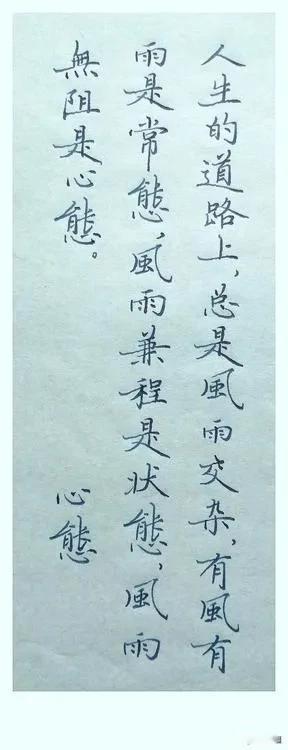 人生的道路上，总是風雨交杂，有風有
雨是常態，風雨兼程是状態，風雨
無阻是心態。
心態